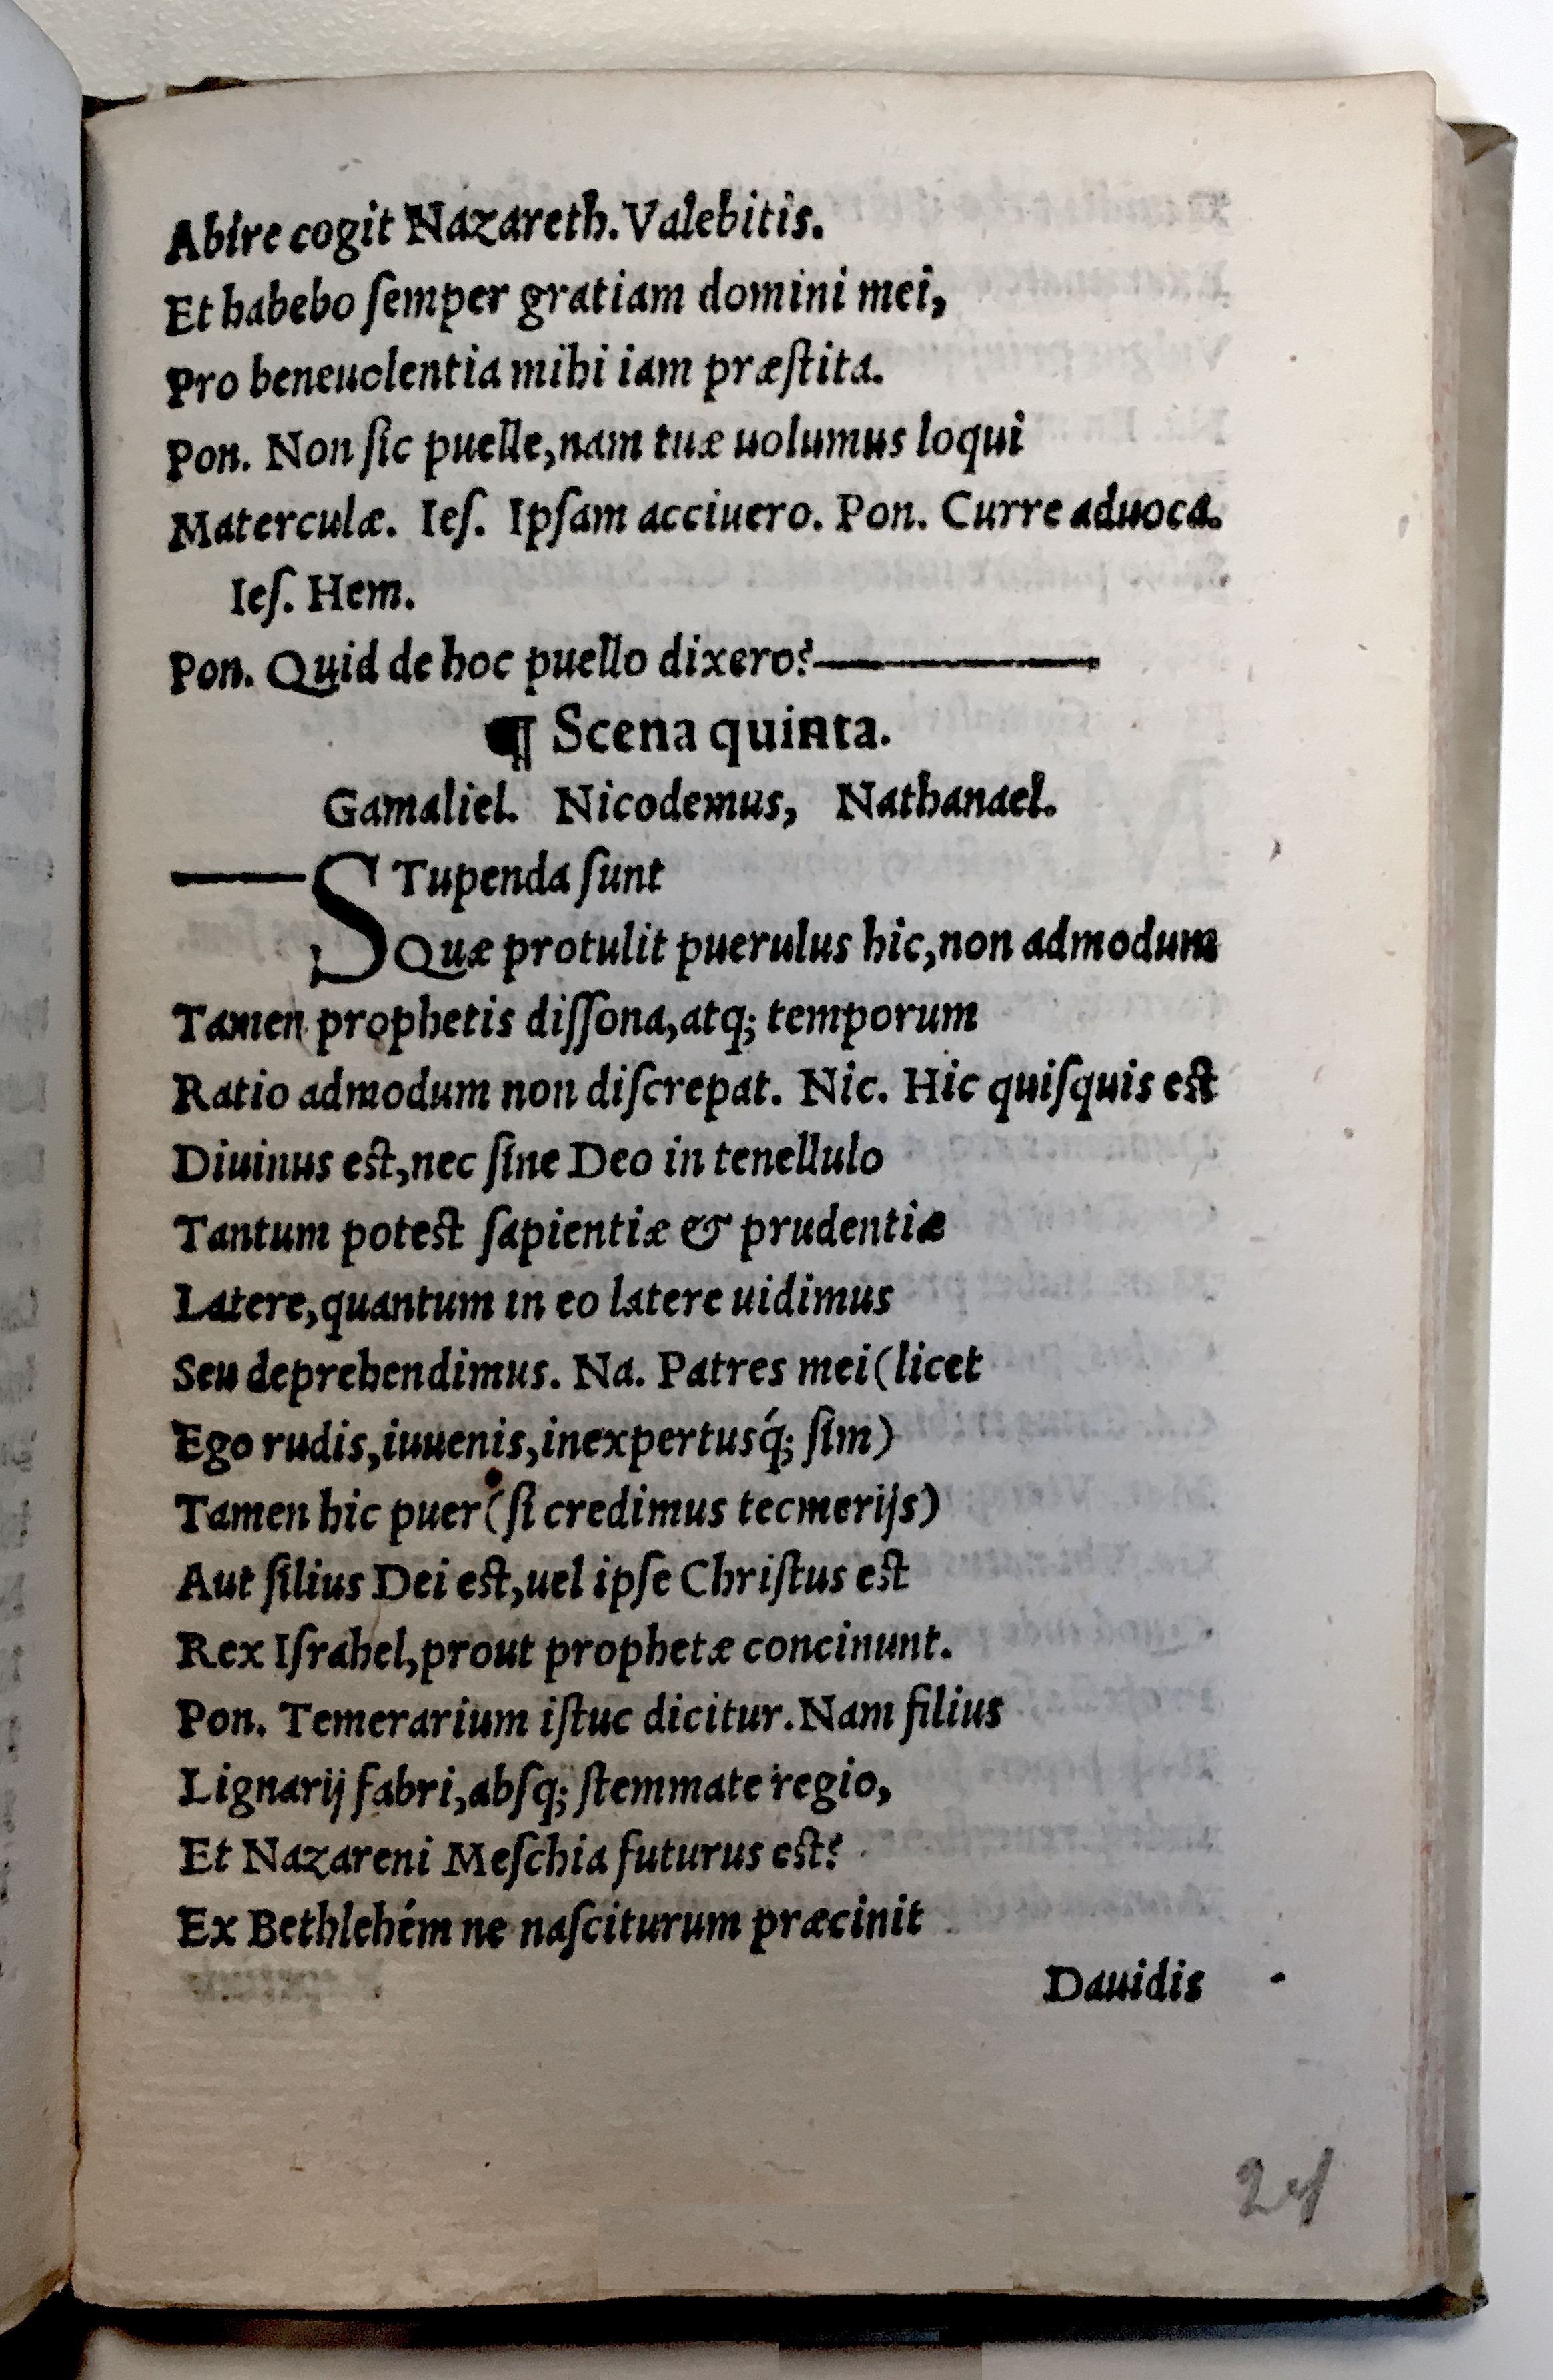 Abire cogit Nazareth. Valebitis.
Et habebo ſemper gratiam domini mei,
Pro beneuolentia mihi iam præſtita.
Pon. Non ſic puelle, nam tuæ uolumus loqui
Materculæ. Ieſ. Ipſam acciuero. Pon. Curre aduoca.
Ieſ. Hem.
Pon. Quid de hoc puello dixero?—
¶ Scena quinta.
Gamaliel. Nicodemus, Nathanael.
—STupenda ſunt
Quæ protulit puerulus hic, non admodum
Tamen prophetis diſſona, atq; temporum
Ratio admodum non diſcrepat. Nic. Hic quiſquis eſt
Diuinus eſt, nec ſine Deo in tenellulo
Tantum poteſt ſapientiæ & prudentiæ
Latere, quantum in eo latere uidimus
Seu deprehendimus. Na. Patres mei (licet
Ego rudis, iuuenis, inexpertusq́; ſim)
Tamen hic puer (ſi credimus tecmerijs)
Aut filius Dei eſt, uel ipſe Chriſtus eſt
Rex Iſrahel, prout prophetæ concinunt.
Pon. Temerarium iſtuc dicitur. Nam filius
Lignarij fabri, abſq; ſtemmate regio,
Et Nazareni Meſchia futurus eſt?
Ex Bethlehém ne naſciturum præcinit
Dauidis
24